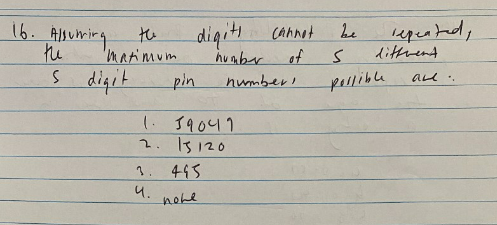 16. Assuming the digits cannot be repeated,
the maximum number of 5 different
5 digit pin numbers possible are :
1. 59049
2. 15120
3. 495
4. none